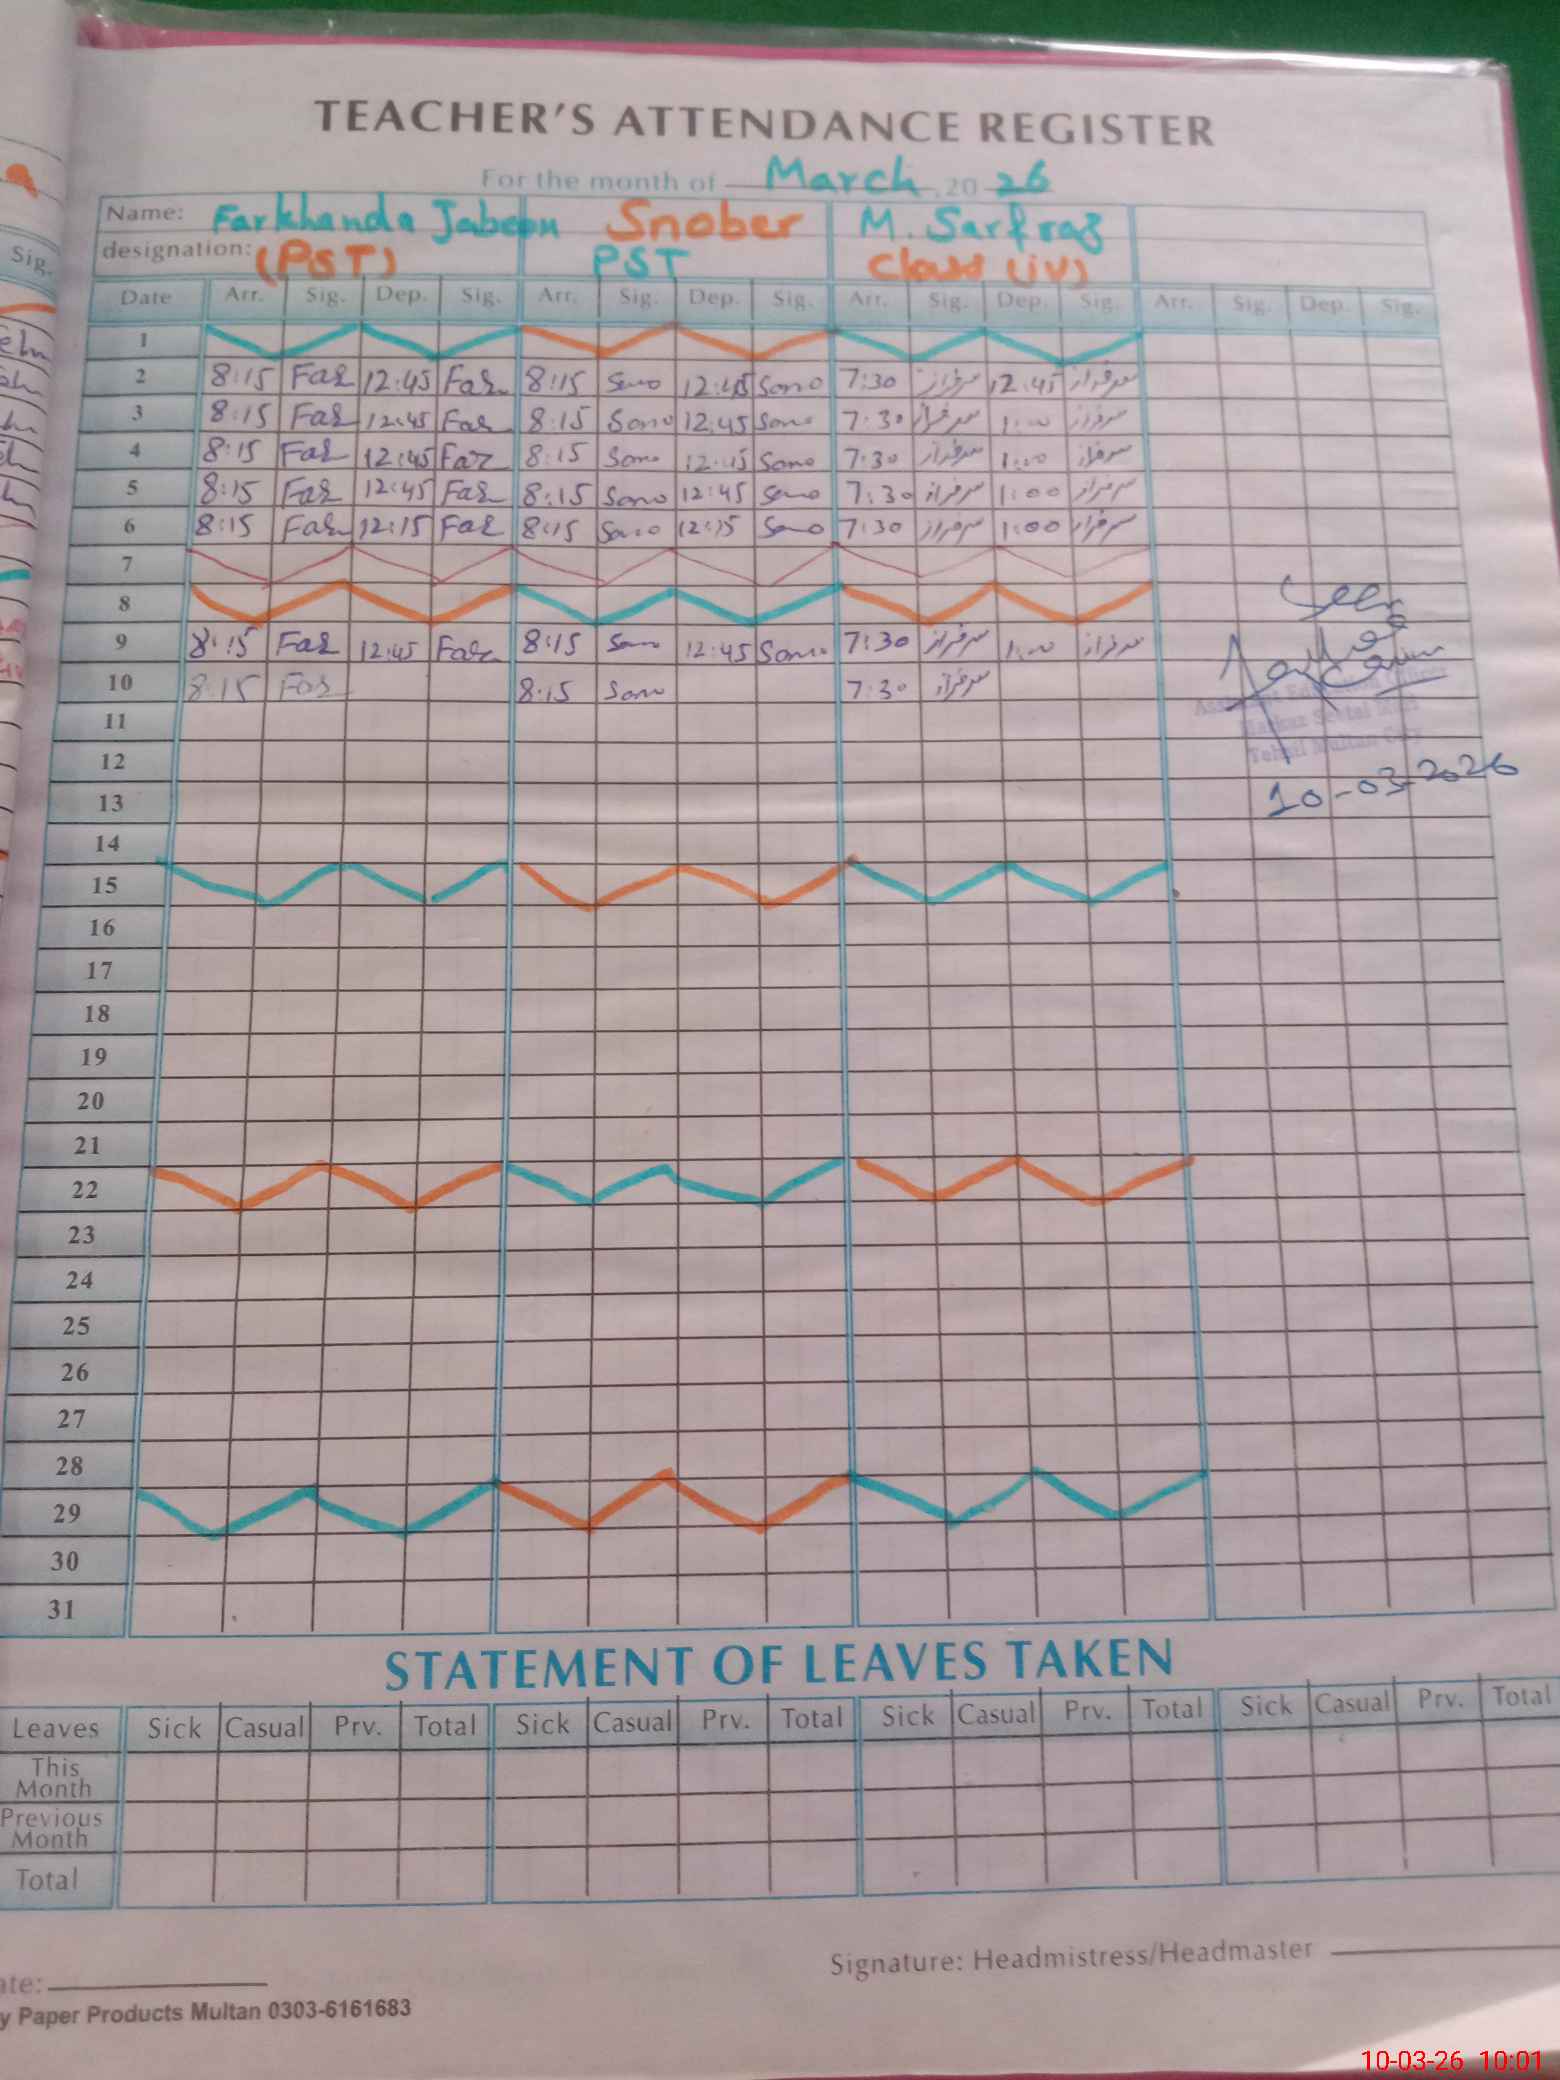 TEACHER'S ATTENDANCE REGISTER
For the month of March 20 26
Name: Farkhanda Jabeen Snober M. Sarfraz
designation: (PST) PST Class (iv)
Date Arr. Sig. Dep. Sig. Arr. Sig. Dep. Sig. Arr. Sig. Dep. Sig. Arr. Sig. Dep. Sig.
1
2 8:15 Far 12:45 Far 8:15 Sono 12:45 Sono 7:30 سرفراز 12:45 سرفراز
3 8:15 Far 12:45 Far 8:15 Sono 12:45 Sono 7:30 سرفراز 1:00 سرفراز
4 8:15 Far 12:45 Far 8:15 Sono 12:45 Sono 7:30 سرفراز 1:00 سرفراز
5 8:15 Far 12:45 Far 8:15 Sono 12:45 Sono 7:30 سرفراز 1:00 سرفراز
6 8:15 Far 12:15 Far 8:15 Sono 12:15 Sono 7:30 سرفراز 1:00 سرفراز
7
8
9 8:15 Far 12:45 Far 8:15 Sono 12:45 Sono 7:30 سرفراز 1:00 سرفراز
10 8:15 Far 8:15 Sono 7:30 سرفراز
11
12
13
14
15
16
17
18
19
20
21
22
23
24
25
26
27
28
29
30
31
Seen
Assistant Education Officer
Markaz
Tehsil Multan City
10-03-2026
STATEMENT OF LEAVES TAKEN
Leaves Sick Casual Prv. Total Sick Casual Prv. Total Sick Casual Prv. Total Sick Casual Prv. Total
This Month
Previous Month
Total
Signature: Headmistress/Headmaster
Paper Products Multan 0303-6161683
10-03-26 10:01
Sig.